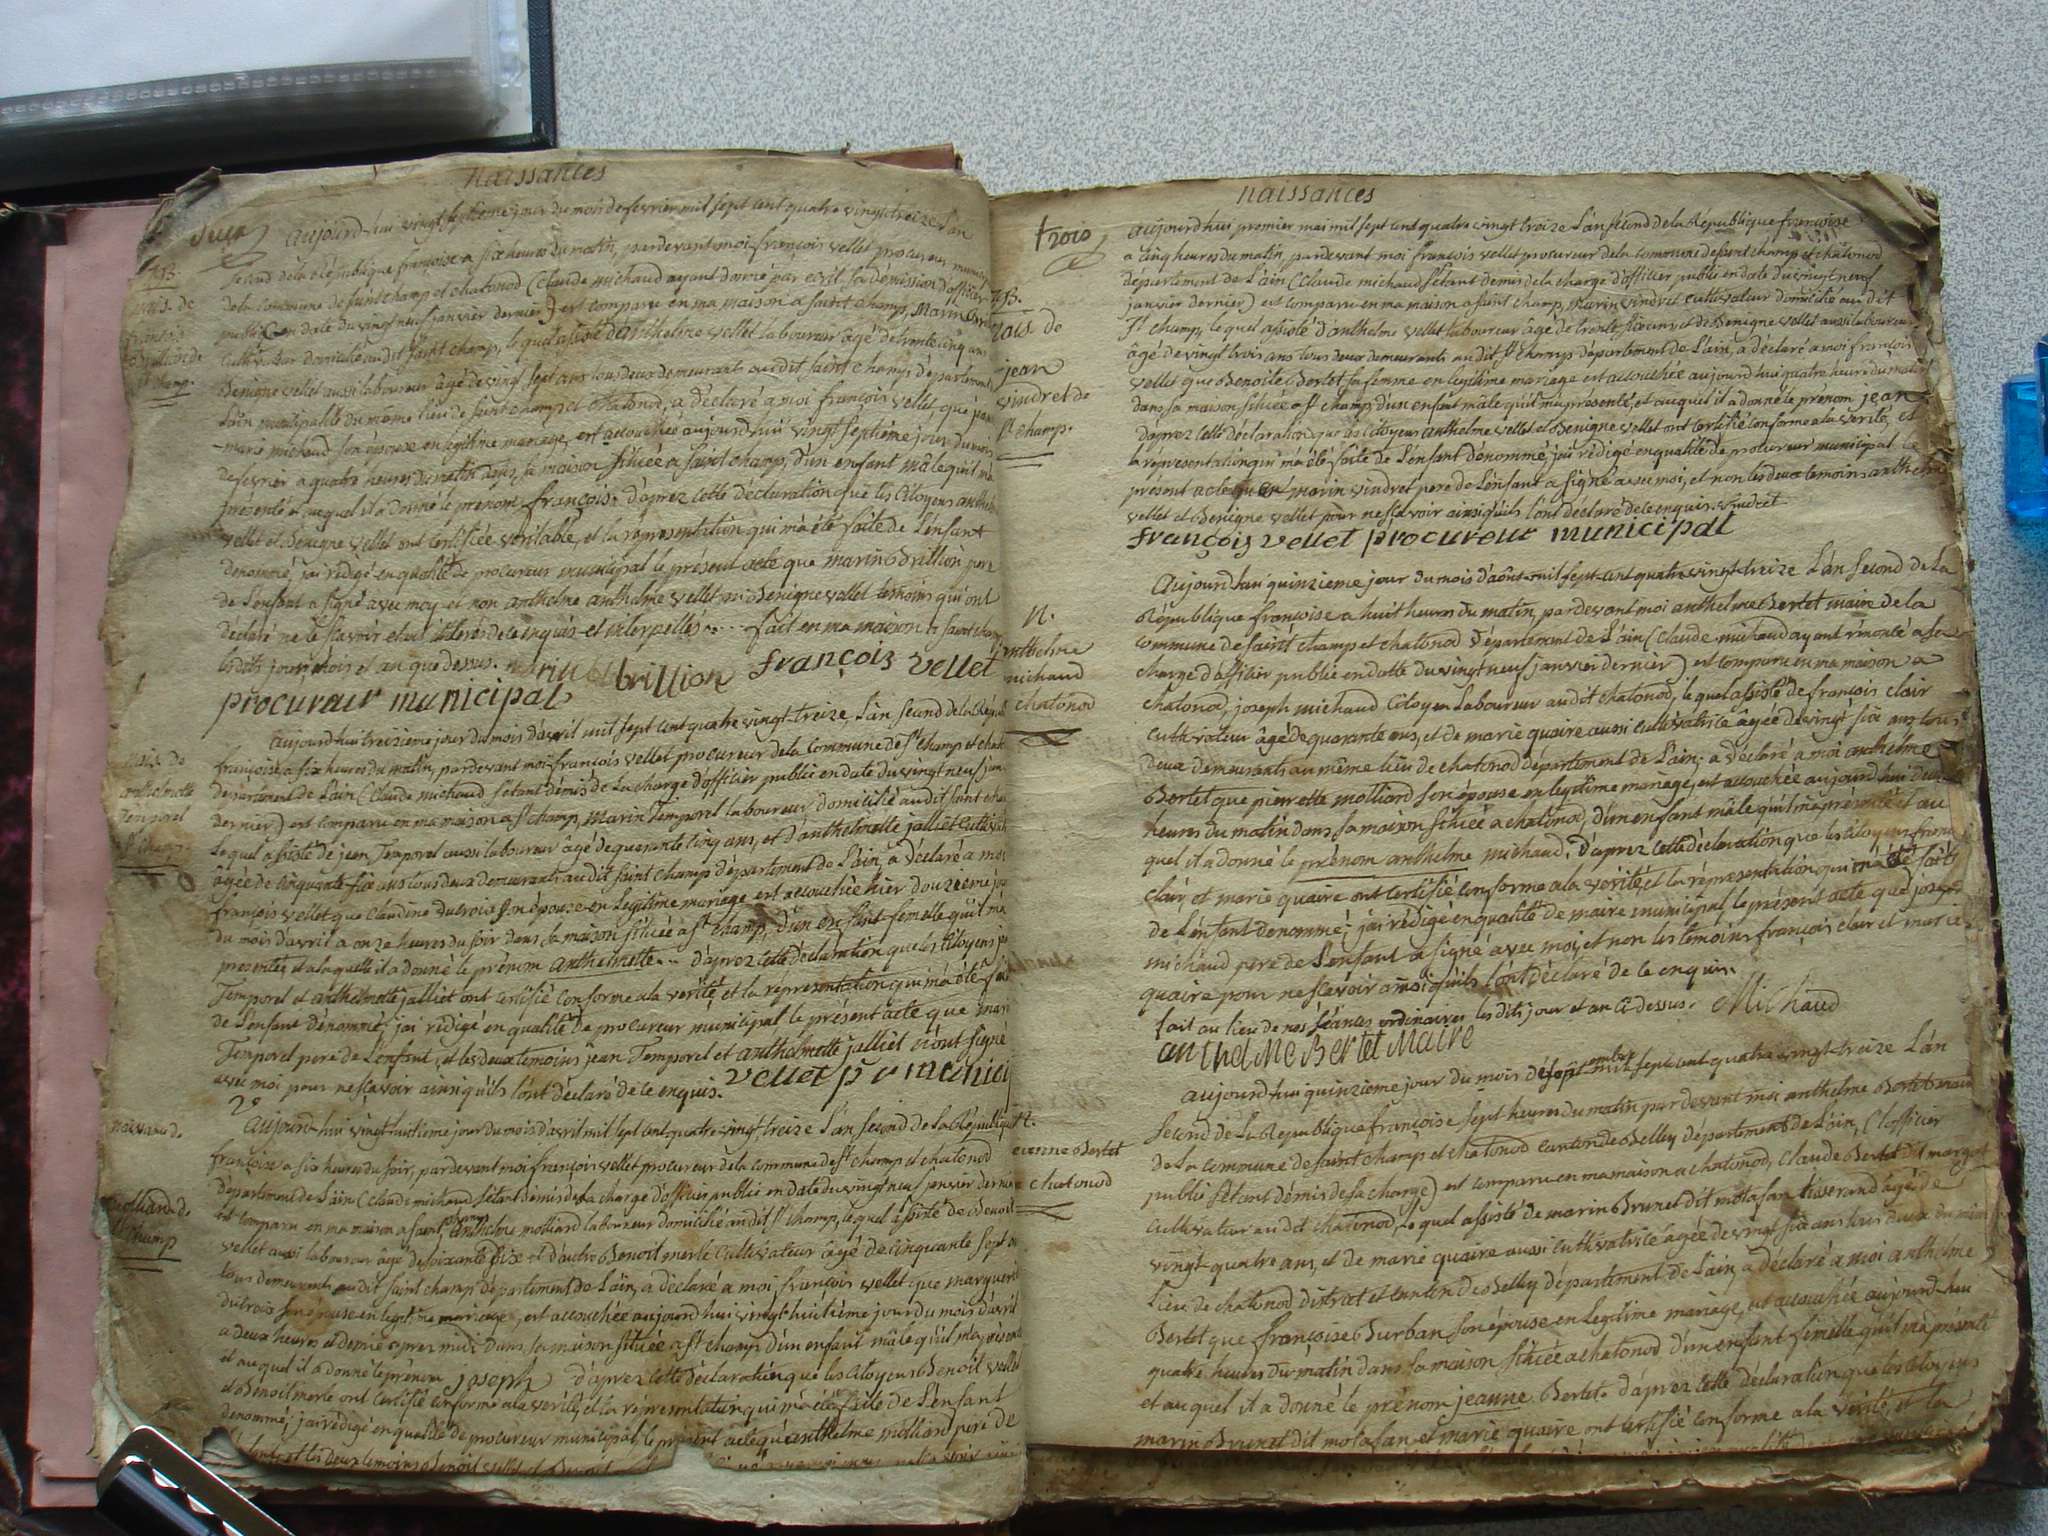 naissances
deux
aujourd'hui vingt septième jour du mois de fevrier mil sept cent quatre vingt treize L'an
second de la République françoise a six heures du matin, pardevant moi françois vellet procureur
de la commune de saint champ et chatonod (Claude michaud ayant donné par ecrit sa démission d'officier
public en date du vingt neuf janvier dernier) est comparu en ma maison a saint champ, Marin
cultivateur domicilié audit saint champ, le quel assisté d'anthelme vellet laboureur âgé de trente cinq ans
Benigne vellet aussi laboureur âgé de vingt sept ans tous deux demeurant audit saint champ département
L'ain municipalité du même lieu de saint champ et chatonod, a déclaré a moi françois vellet, que
marie michaud son épouse en légitime mariage, est accouchée aujourd'hui vingt septième jour du mois
de fevrier a quatre heures du matin dans sa maison située a saint champ, d'un enfant mâle qu'il m'a
présenté et auquel il a donné le prenom françois. d'après cette déclaration que les citoyens
vellet et Benigne vellet ont certifiée véritable, et la représentation qui m'a été faite de L'enfant
denommé, j'ai rédigé en qualité de procureur municipal le présent acte que marin Brillion pere
de L'enfant a signé avec moy et non anthelme anthelme vellet ni Benigne vellet témoins qui ont
déclaré ne le sçavoir de ce enquis et interpellés..... fait en ma maison a saint
les dits jour, mois et an que dessus. brillion françois vellet
procureur municipal
nais. de
anthelmette
Temporel
St champ
aujourd'hui treizième jour du mois d'avril mil sept cent quatre vingt treize L'an second de la
françoise a six heures du matin, pardevant moi françois vellet procureur de la commune de St champ et
département de L'ain (Claude michaud s'étant démis de la charge d'officier public en date du vingt neuf
dernier) est comparu en ma maison a St champ, Marin Temporel laboureur domicilié audit saint
le quel assisté de jean Temporel aussi laboureur âgé de quarante cinq ans, et d'anthelmette jalliet
âgée de cinquante six ans tous deux demeurants audit saint champ département de L'ain, a déclaré a moi
françois vellet que Claudine dutrois son épouse en légitime mariage est accouchée hier douzieme
du mois d'avril a onze heures du soir dans sa maison située a St champ, d'un enfant femelle qu'il m'a
presentée et a laquelle il a donné le prénom anthelmette... d'après cette déclaration que les citoyens
Temporel et anthelmette jalliet ont certifié conforme a la verité, et la représentation qui m'a été
de L'enfant dénommé, j'ai rédigé en qualité de procureur municipal le présent acte que
Temporel pere de L'enfant, et les deux temoins jean Temporel et anthelmette jalliet n'ont signé
avec moi pour ne sçavoir ainsi qu'ils l'ont déclaré de ce enquis. vellet
molliard de
St champ
Aujourd'hui vingt huitième jour du mois d'avril mil sept cent quatre vingt treize L'an second de la République
françoise a six heures du soir, pardevant moi françois vellet procureur de la commune de St champ et chatonod
département de L'ain (Claude michaud s'étant démis de la charge d'officier public en date du vingt neuf janvier
est comparu en ma maison a saint champ anthelme molliard laboureur domicilié audit St champ, le quel assisté de Benoit
vellet aussi laboureur âgé de soixante et d'autre Benoit merle cultivateur âgé de cinquante sept
tous demeurants audit saint champ département de L'ain, a déclaré a moi françois vellet que
dutrois son épouse en légitime mariage, est accouchée aujourd'hui vingt huitième jour du mois d'avril
a deux heures et demie apres midi dans sa maison située a St champ d'un enfant mâle qu'il m'a présenté
et auquel il a donné le prénom joseph d'après cette déclaration que les citoyens Benoit vellet
et Benoit merle ont certifié conforme a la vérité, et la représentation qui m'a été faite de L'enfant
denommé; j'ai rédigé en qualité de procureur municipal, le présent acte qu'anthelme molliard pere de
naissances
trois
nais. de
jean
vindret de
St champ.
aujourd'hui premier mai mil sept cent quatre vingt treize L'an second de la République françoise
a cinq heures du matin, pardevant moi françois vellet procureur de la commune de saint champ et chatonod
département de L'ain (Claude michaud s'étant demis de la charge d'officier public en date du vingt neuf
janvier dernier) est comparu en ma maison a saint champ, Marin vindret cultivateur domicilié audit
St champ, le quel assisté d'anthelme vellet laboureur âgé de trente ans et de Benigne vellet aussi laboureur
âgé de vingt trois ans tous deux demeurants audit St champ département de L'ain, a déclaré a moi françois
vellet que Benoite Bertet sa femme en legitime mariage est accouchée aujourd'hui quatre heure du matin
dans sa maison située a St champ, d'un enfant mâle qu'il m'a présenté, et auquel il a donné le prénom jean
d'après cette déclaration que les citoyens anthelme vellet et Benigne vellet ont certifié conforme a la verité, et
la représentation qui m'a été faite de L'enfant dénommé j'ai rédigé en qualité de procureur municipal le
présent acte que marin vindret pere de L'enfant a signé avec moi, et non les deux temoins
vellet et Benigne vellet pour ne sçavoir ainsi qu'ils l'ont déclaré de ce enquis. vindret
françois vellet procureur municipal
N.
anthelme
michaud
chatonod
Aujourd'hui quinzieme jour du mois d'août mil sept cent quatre vingt treize L'an second de la
République françoise a huit heures du matin, pardevant moi anthelme Bertet maire de la
commune de saint champ et chatonod département de L'ain (Claude michaud ayant
charge d'officier public en datte du vingt neuf janvier dernier) est comparu en ma maison a
chatonod, joseph michaud citoyen laboureur audit chatonod, le quel assisté de françois clair
cultivateur âgé de quarante ans, et de marie quaire aussi cultivatrice âgée de vingt six ans tous
deux demeurants au même lieu de chatonod département de L'ain; a déclaré a moi anthelme
Bertet que pierrette molliard son épouse en legitime mariage, est accouchée aujourd'hui deux
heures du matin dans sa maison située a chatonod, d'un enfant mâle qu'il m'a présenté et au
quel il a donné le prénom anthelme michaud. d'après cette déclaration que les citoyens
clair, et marie quaire ont certifié conforme a la verité, et la représentation qui m'a été faite
de L'enfant denommé; j'ai rédigé en qualité de maire municipal le présent acte que joseph
michaud pere de L'enfant a signé avec moi, et non les temoins françois clair et marie
quaire pour ne sçavoir ainsi qu'ils l'ont déclaré de ce enquis.
fait au lieu de nos séances ordinaires les dits jour et an ci dessus. Michaud
anthelme Bertet Maire
Bertet
chatonod
aujourd'hui quinzieme jour du mois de septembre mil sept cent quatre vingt treize L'an
second de la République françoise sept heures du matin par devant moi anthelme Bertet maire
de la commune de saint champ et chatonod canton de Belley département de L'ain, (L'officier
public s'étant démis de sa charge) est comparu en ma maison a chatonod, Claude Bertet dit
cultivateur audit chatonod, le quel assisté de marin Brunet dit motafan tisserand âgé de
vingt quatre ans, et de marie quaire aussi cultivatrice âgée de vingt six ans tous deux du même
lieu de chatonod district et canton de Belley département de L'ain, a déclaré a moi anthelme
Bertet que françoise Burban son épouse en legitime mariage, est accouchée aujourd'hui
quatre heures du matin dans sa maison située a chatonod d'un enfant femelle qu'il m'a présenté
et auquel il a donné le prénom jeanne Bertet. d'après cette déclaration que les citoyens
marin Brunet dit motafan et marie quaire ont certifié conforme a la vérité, et la